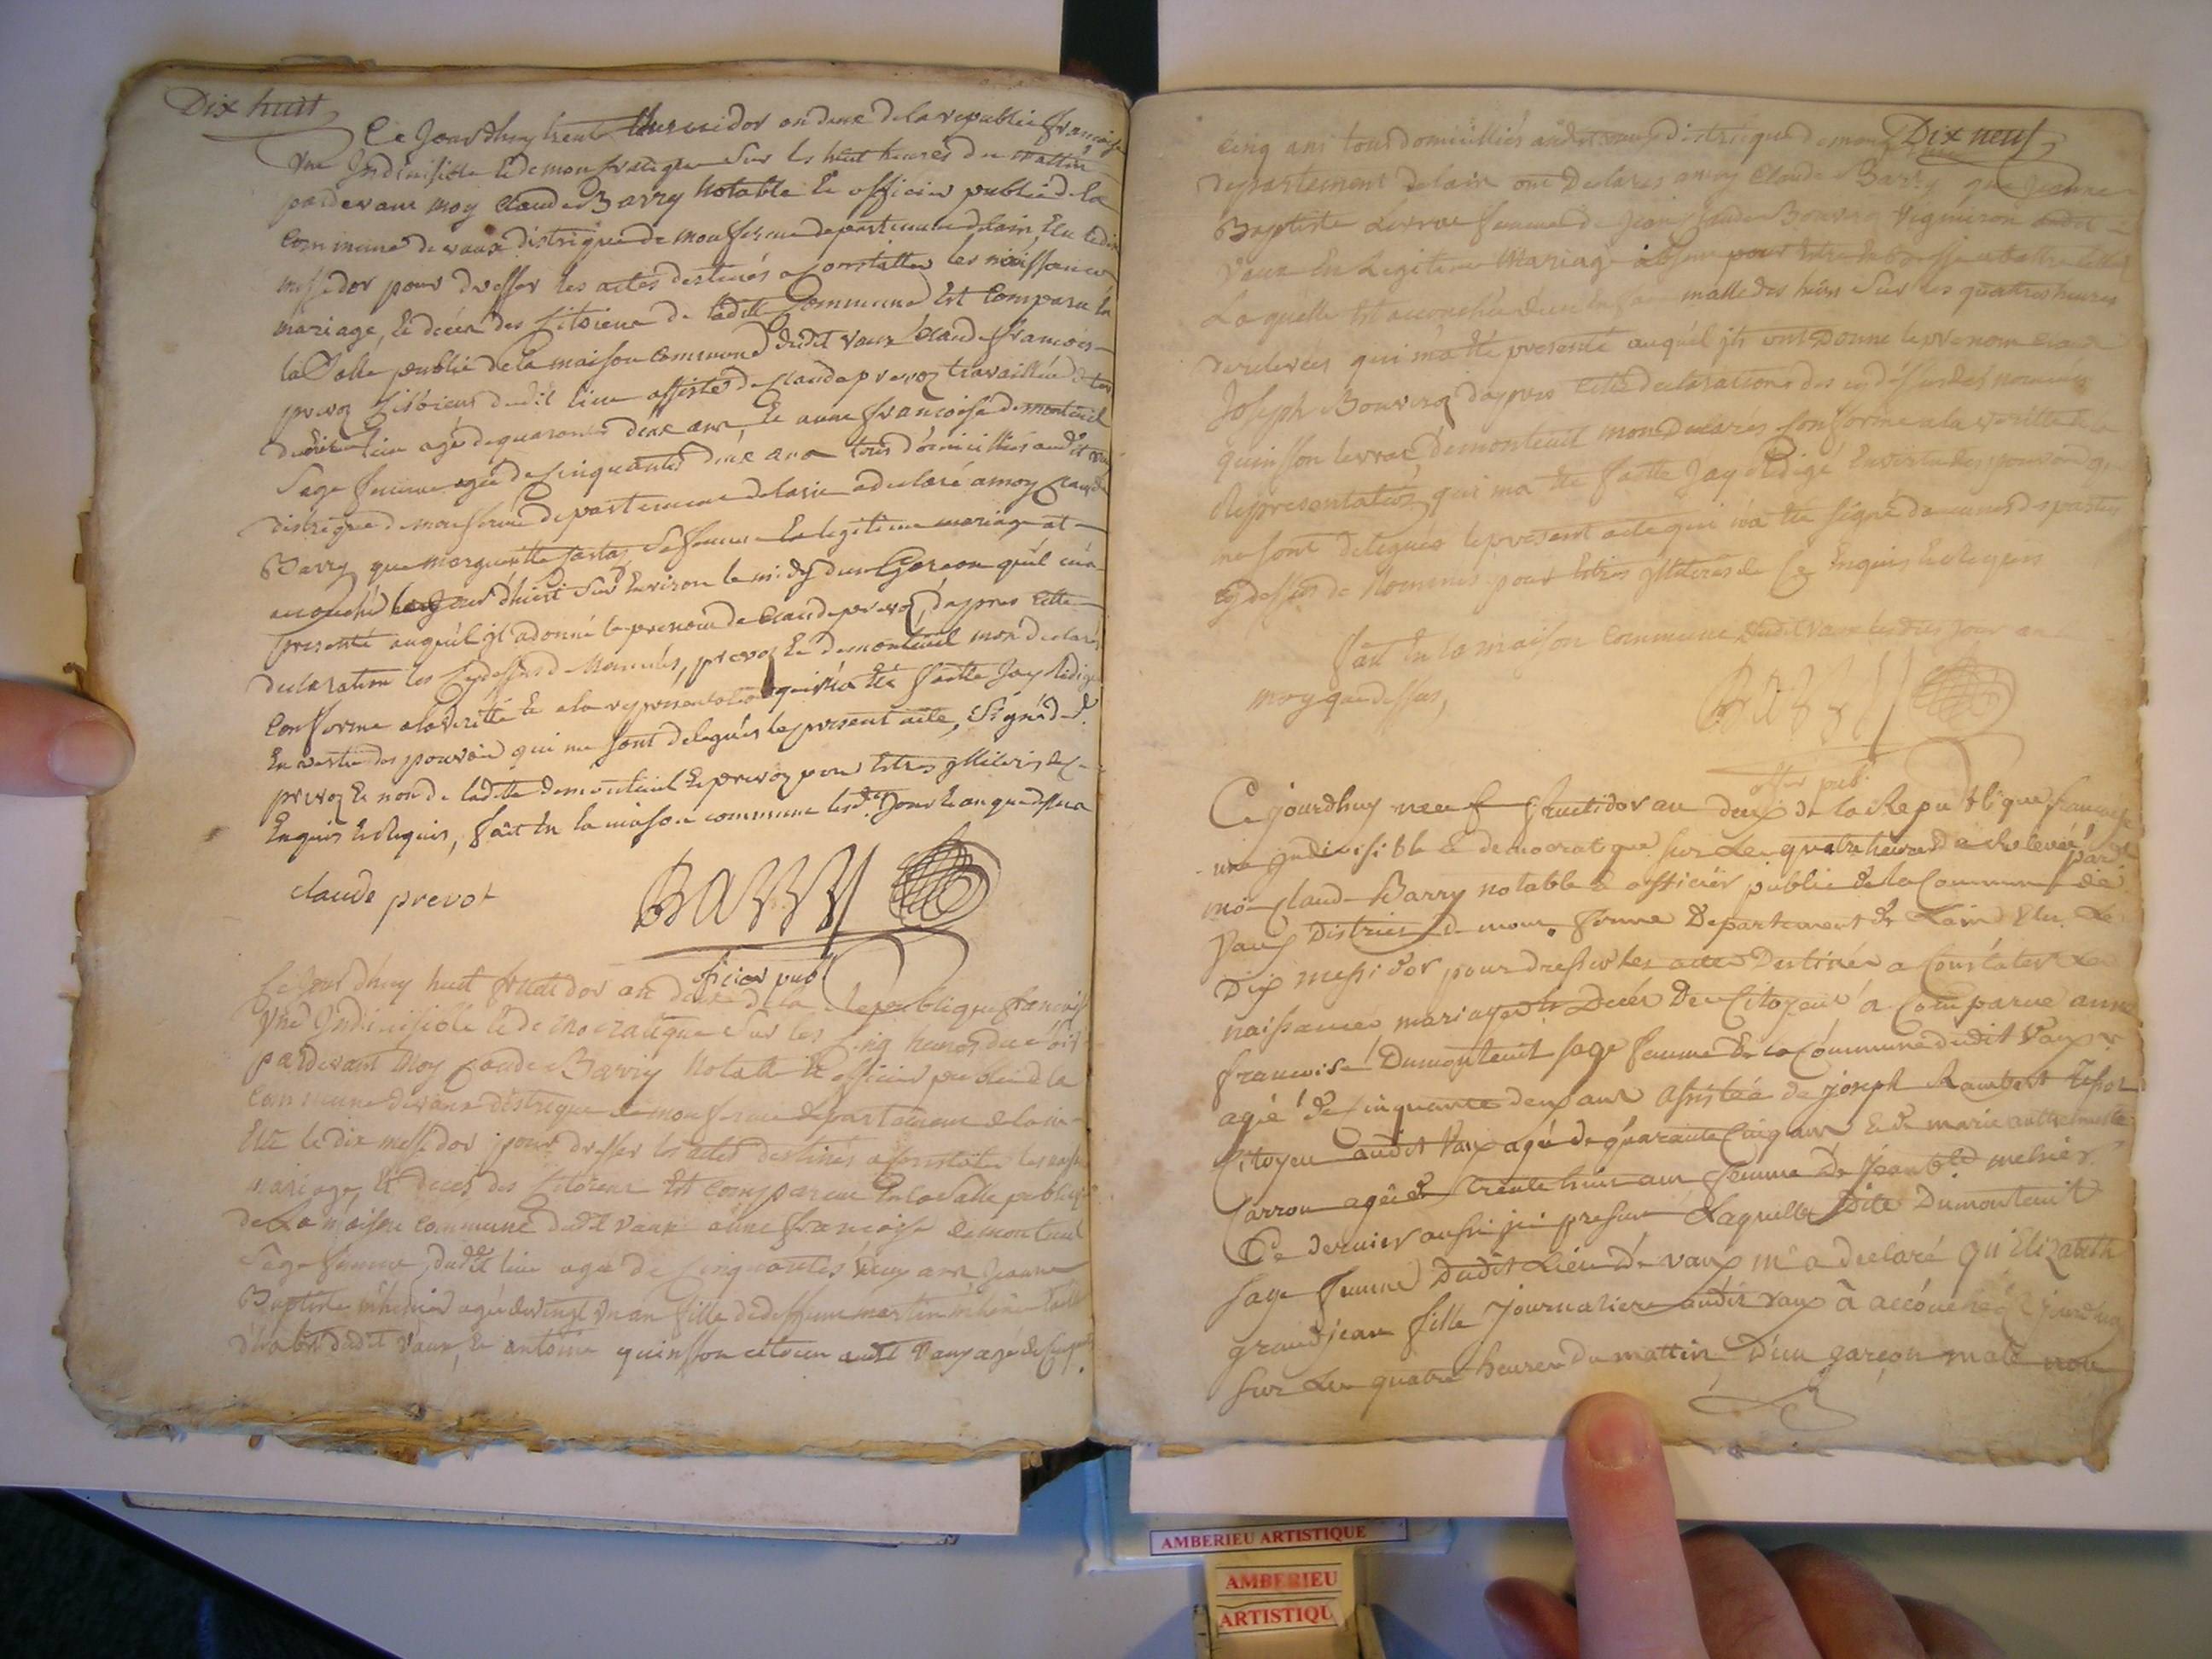 Dix huit
Ce Jourdhuy trente thermidor an deux de la republic française
une Indivisible Et democratique Sur les huit heures du mattin
pardevant moy Claude Barry Notable Et officier public de la
Commune de vaux distrique de monferme departement delain Elu le dix
messidor pour dresser les actes destinés a Constatter les naissance
mariage, Et décès des Citoiens de ladite Commune Est Comparu En
la Salle public de la maison commune dudit vaux Claude françois
prevoz Citoiens dudit lieu assisté de Claude prevoz travailleur de ter
dudit lieu agé de quarante deux ans, Et anne françoise demonteuil
Sage femme agée de Cinquantes deux ans tous domicilliés audit vaux
distrique de monferme departement delain a declaré a moy Claude
Barry que margueritte Sa femme En legitime mariage at
accouché le jour d'hier Sur Environ le midy d'un Garcon qu'il m'a
presenté auquél jl adonné le prenom de Claude prevoz, d'apres cette
declaration les Cydessus de Nommés, prevoz Et demonteuil mon declaré
Conforme a la veritté Et a la representation qui m'a Eté faitte Jay Redigé
En vertu des pouvoir qui me sont delegués le present acte, Signé du d.
prevoz Et non de ladite demonteuil Et prevoz pour Estres Illiteres de Ce
Enquis Et Requis, fait En la maison commune lesdit Jour Et an que dessus
claude prevot
BARRY
officier pub
Ce Jour dhuy huit fructidor an deux de la Republique francaise
Une Indivisible Et democratique Sur les Cinq heures du Soir
pardevant Moy Claude Barry Notable Et officier public de la
Commune de vaux distrique de monferme departement de lain
Elu le dix messidor pour dresser les actes destinés a Constater les naiss
mariage Et décès des Citoiens Est Comparue En la Salle public
de La maison commune dudit vaux anne françoise demonteuil
Sage femme dudit lieu agée de Cinquantes deux ans Jeanne
Baptiste agée de vingt un an fille de deffunt martin
d'habit dudit vaux, Et antoine quinsson citoien audit vaux agé de
Dix neuf
cinq ans tous domicilliés audit vaux distrique de monferme
departement delain ont Declarés a moy Claude Barry que Jeanne
Baptiste Levrat femme de Jean Claude Bouvroz Vigneron audit
Vaux En Legitime Mariage absent pour
Laquelle Est accouchée d'un Enfan malle des hier Sur les quatres heures
derelevées qui m'a Eté presenté auquél jls ont Donné le prenom Claude
Joseph Bouvroz dapres cette declaration des cy déssus des nommés
quinsson levrat demonteuil mon Declarés Conforme a la veritté Et la
Representation qui ma Eté faitte Jay Redigé En vertu des pouvoir qui
me sont delegués le present acte qui n'a Eté signé d'aucunes des parties
cy dessus de Nommés pour Estres Illiteres de Ce Enquis Et Requis
fait En la maison Commune dudit vaux lesdits jour an
moy que dessus,
BARRY
offer pub
Ce jourdhuy neuf fructidor an deux de la Republique francaise
une jndivisible et democratique sur les quatre heures de relevée
moi Claude Barry notable & officier public de la Commune de
Vaux District de mon. ferme Departement de Lain Elu Le
Dix messidor pour dresser les actes Destinés a Constater Les
naissances mariages et Décès Des Citoyens a Comparue anne
francoise Dumonteuil sage femme de la Commune dudit Vaux
agée de cinquante deux ans assistée de joseph Rambert
Citoyen audit Vaux agé de quarante Cinq ans et de marie anthelmette
Carron agée de trente huit ans femme de Jean
Ce dernier aussi ji presant Laquelle Dite Dumonteuil
sage femme Dudit Lieu de vaux m'a declaré qu'Elizabeth
grandjean fille Journaliere audit vaux à accouché Ce jourdhuy
sur Les quatre heures Du mattin D'un garçon male non
AMBERIEU ARTISTIQUE
AMBERIEU
ARTISTIQU